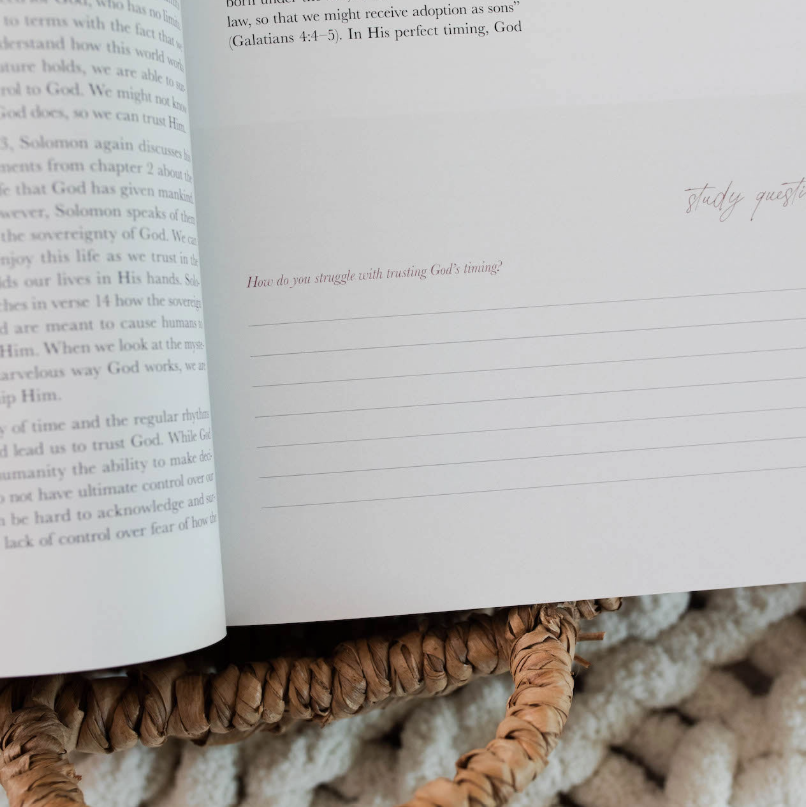 who has no
to terms with the fact that
how this world
holds, we are able to
to God. We might not
God does, so we can trust Him.
3, Solomon again discusses
from chapter 2 about the
that God has given mankind
Solomon speaks of them
the sovereignty of God. We can
this life as we trust in the
our lives in His hands.
in verse 14 how the
are meant to cause humans
Him. When we look at the
way God works, we are
Him.
of time and the regular rhythm
lead us to trust God. While God
the ability to make
not have ultimate control over our
be hard to acknowledge and
lack of control over fear of how the
born under
law, so that we might receive adoption as sons”
(Galatians 4:4–5). In His perfect timing, God
study
How do you struggle with trusting God’s timing?